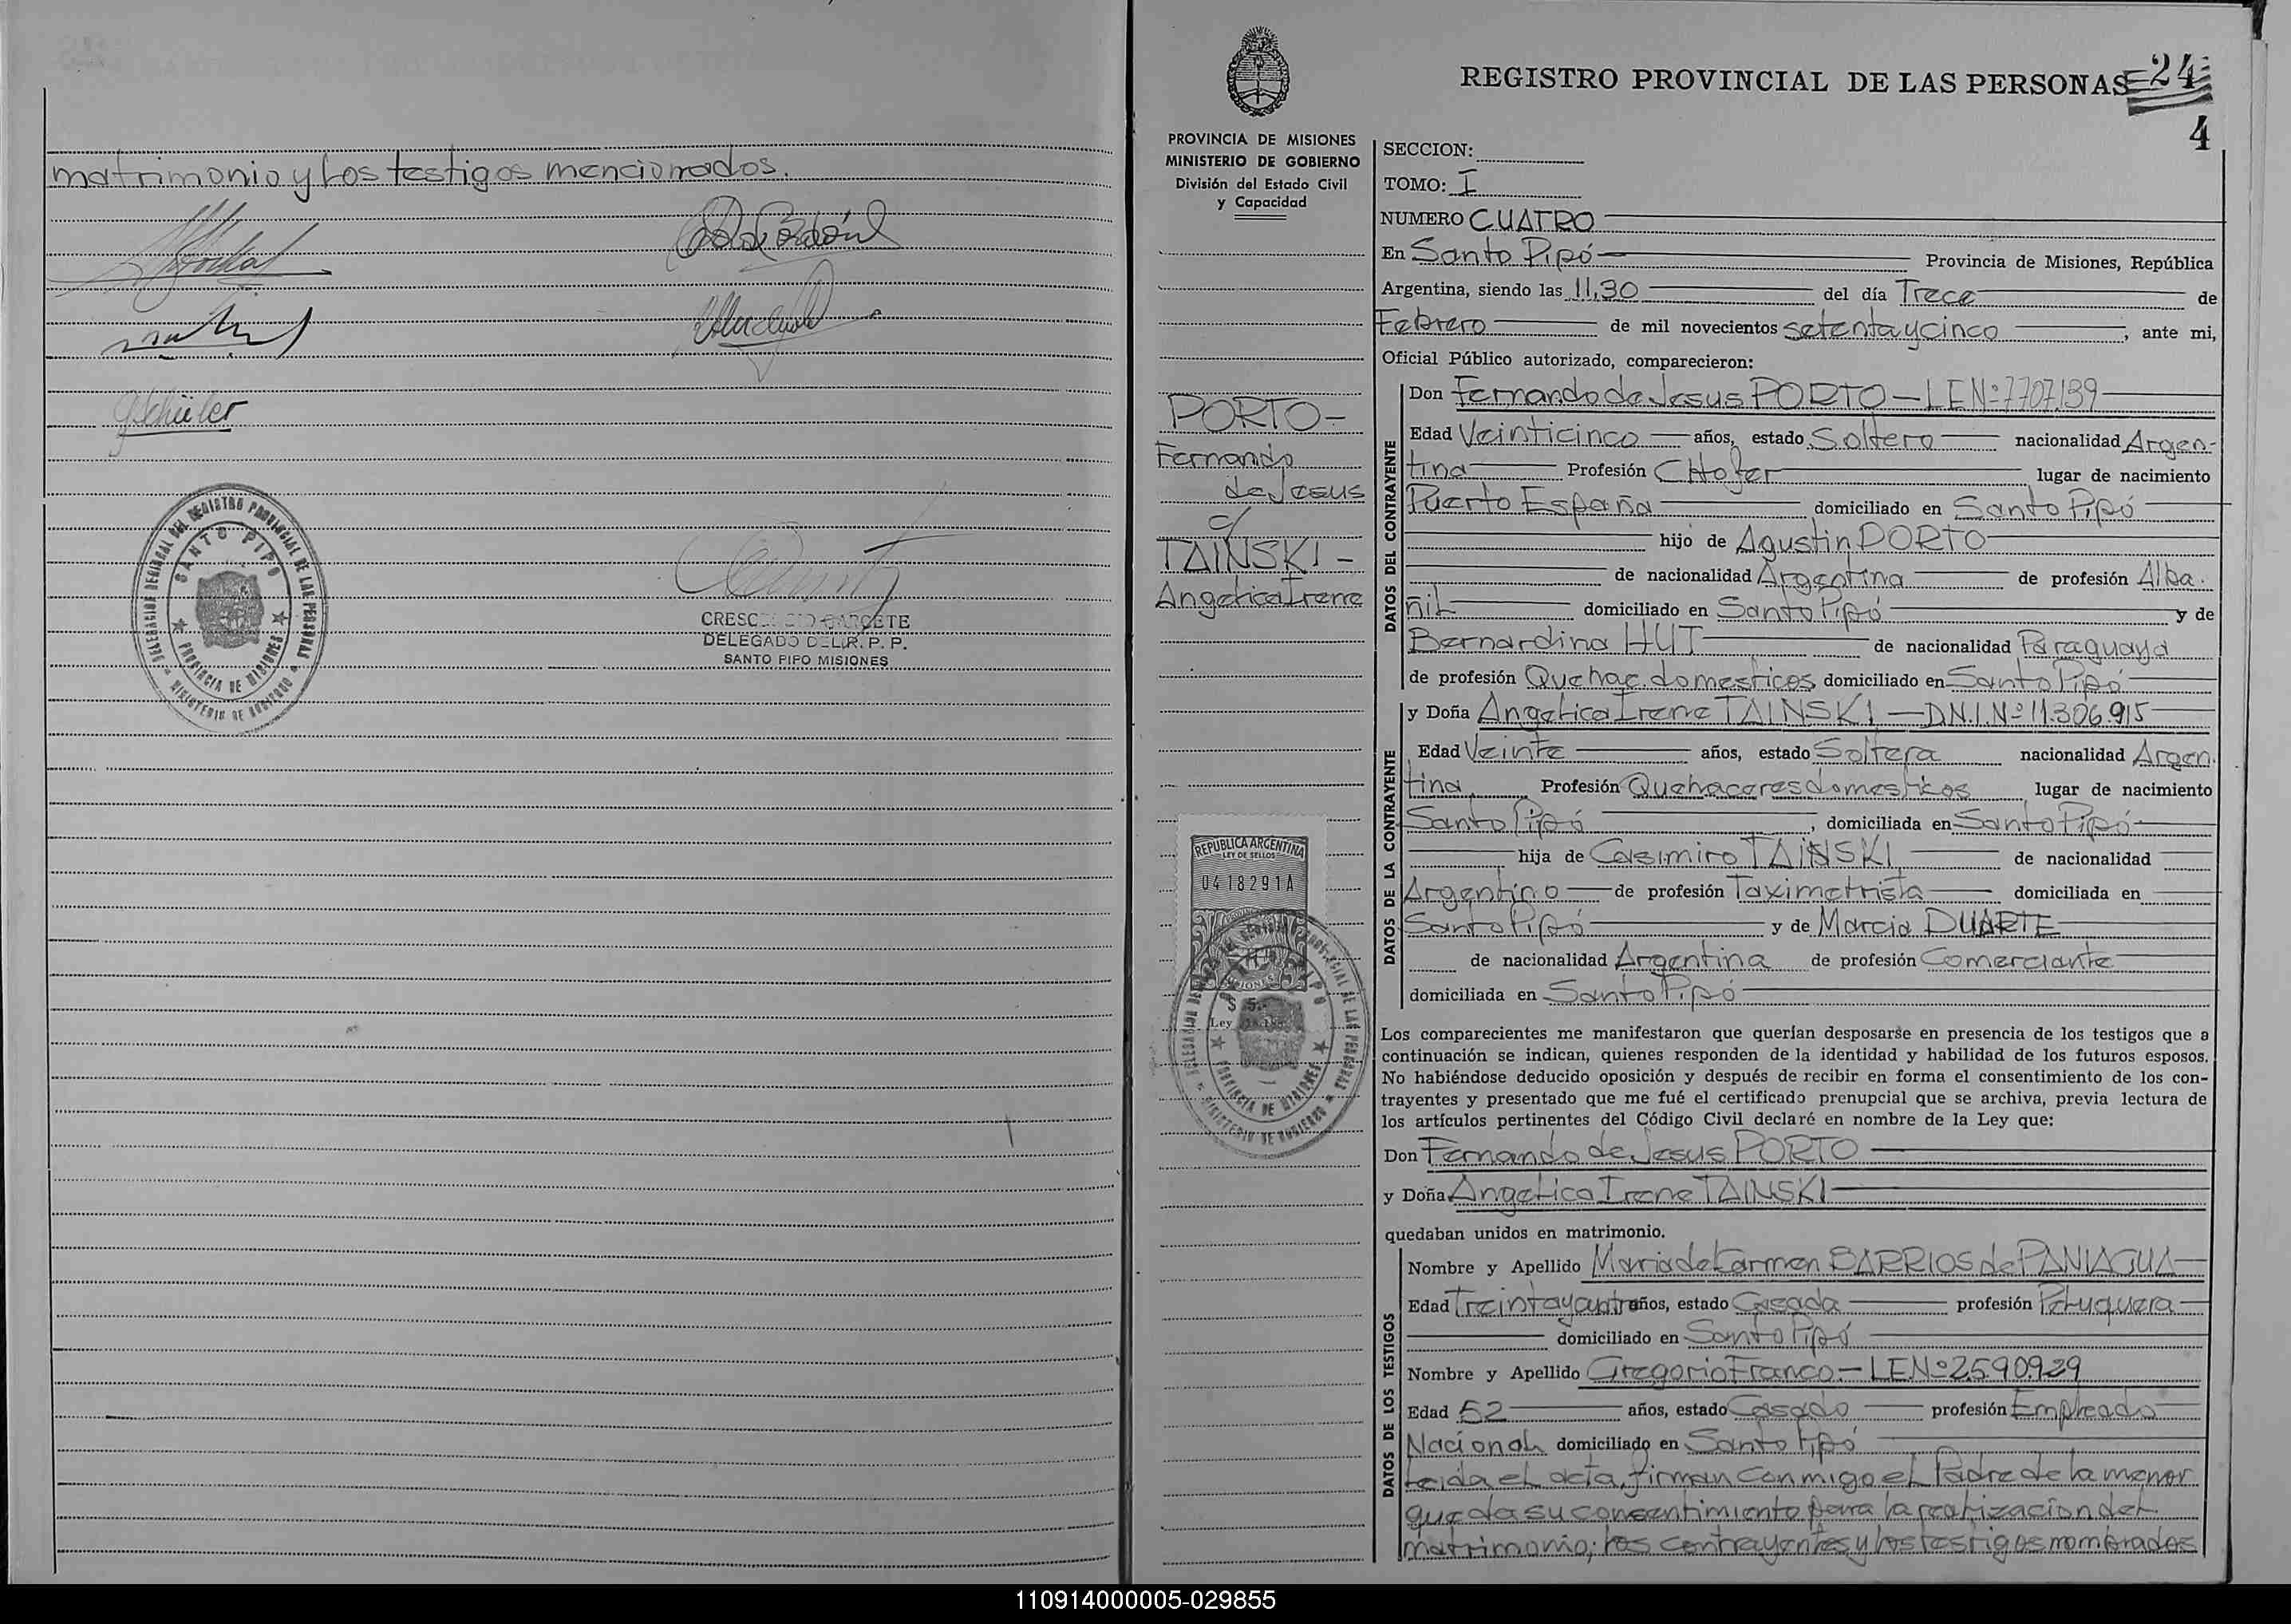 matrimonio y los testigos mencionados.
Gschüler
DELEGACION REGIONAL DEL REGISTRO PROVINCIAL DE LAS PERSONAS
SANTO PIPO
PROVINCIA DE MISIONES
MINISTERIO DE GOBIERNO
DELEGADO DEL R. P. P.
SANTO PIPO MISIONES
REGISTRO PROVINCIAL DE LAS PERSONAS =24=
4
PROVINCIA DE MISIONES
MINISTERIO DE GOBIERNO
División del Estado Civil
y Capacidad
PORTO-
Fernando
de Jesus
c/
TAINSKI-
Angelica Irene
REPUBLICA ARGENTINA
LEY DE SELLOS
0418291A
Ley
SECCION:
TOMO: I
NUMERO CUATRO
En Santo Pipó Provincia de Misiones, República
Argentina, siendo las 11,30 del día Trece de
Febrero de mil novecientos setenta y cinco, ante mi,
Oficial Público autorizado, comparecieron:
DATOS DEL CONTRAYENTE
Don Fernando de Jesus PORTO - LE Nº 7707.139
Edad Veinticinco años, estado Soltero nacionalidad Argen-
tina Profesión CHofer lugar de nacimiento
Puerto España domiciliado en Santo Pipó
hijo de Agustin PORTO
de nacionalidad Argentina de profesión Alba.
ñil domiciliado en Santo Pipó y de
Bernardina HUT de nacionalidad Paraguaya
de profesión Quehac. domesticos domiciliado en Santo Pipó
DATOS DE LA CONTRAYENTE
y Doña Angelica Irene TAINSKI - D.N.I. Nº 11.306.915
Edad Veinte años, estado Soltera nacionalidad Argen.
tina Profesión Quehaceres domesticos lugar de nacimiento
Santo Pipó, domiciliada en Santo Pipó
hija de Casimiro TAINSKI de nacionalidad
Argentino de profesión Taximetrista domiciliada en
Santo Pipó y de Marcia DUARTE
de nacionalidad Argentina de profesión Comerciante
domiciliada en Santo Pipó
Los comparecientes me manifestaron que querían desposarse en presencia de los testigos que a
continuación se indican, quienes responden de la identidad y habilidad de los futuros esposos.
No habiéndose deducido oposición y después de recibir en forma el consentimiento de los con-
trayentes y presentado que me fué el certificado prenupcial que se archiva, previa lectura de
los artículos pertinentes del Código Civil declaré en nombre de la Ley que:
Don Fernando de Jesus PORTO
y Doña Angelica Irene TAINSKI
quedaban unidos en matrimonio.
DATOS DE LOS TESTIGOS
Nombre y Apellido Maria del Carmen BARRIOS de PANIAGUA
Edad Treinta y cuatro años, estado Casada profesión Peluquera
domiciliado en Santo Pipó
Nombre y Apellido Gregorio Franco - LE.Nº 2.590.929
Edad 52 años, estado Casado profesión Empleado
Nacional domiciliado en Santo Pipó
Leida el acta, firman conmigo el Padre de la menor
que da su consentimiento para la realizacion del
matrimonio; los contrayentes y los testigos nombrados
110914000005-029855